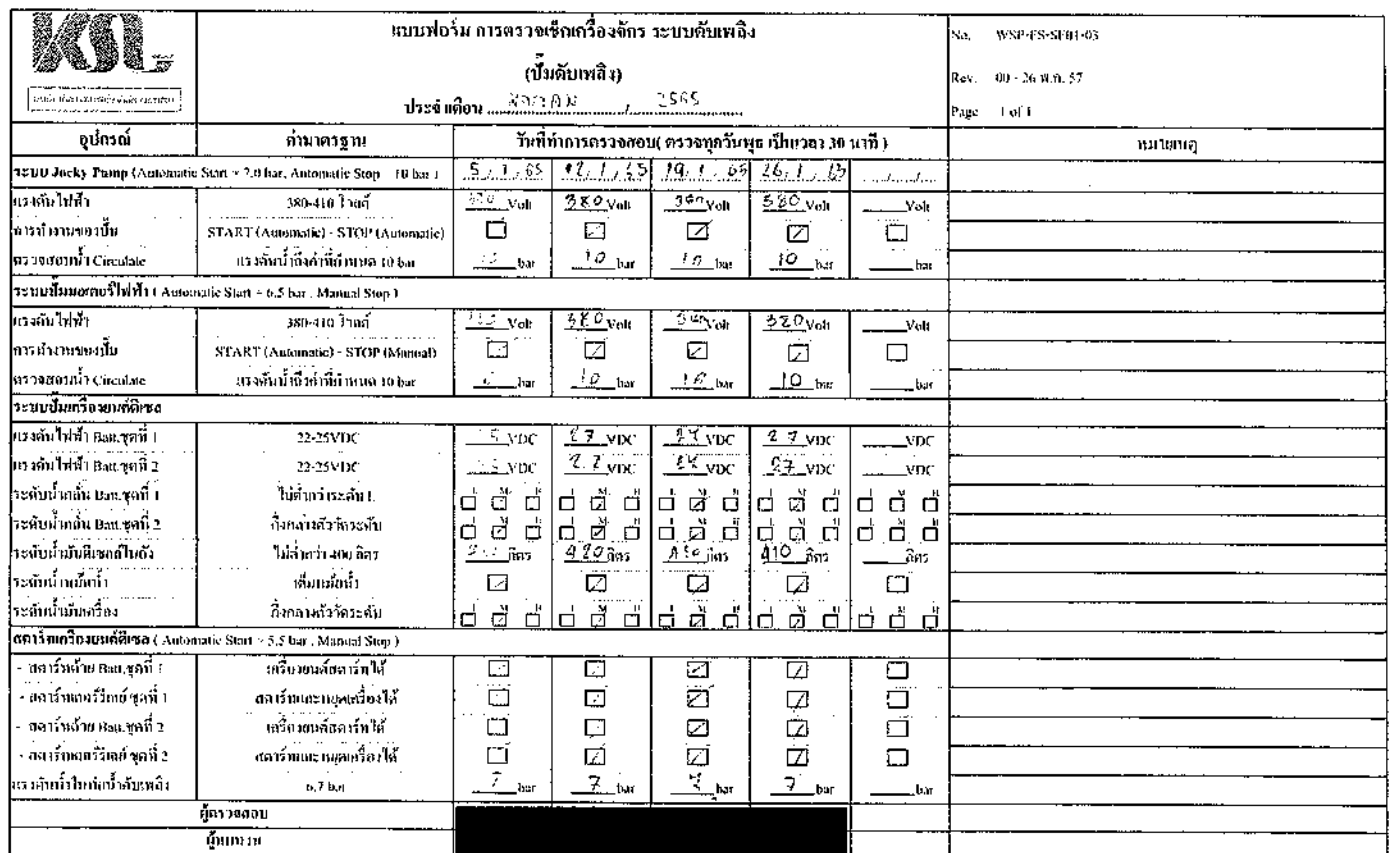 KSL
แบบฟอร์ม การตรวจเช็คเครื่องจักร ระบบดับเพลิง
(ปั๊มดับเพลิง)
ประจำ เดือน มกราคม / 2565
No. WSP-FS-SF01-03
Rev. 00 - 26 พ.ค. 57
Page 1 of 1
อุปกรณ์ ค่ามาตรฐาน วันที่ทำการตรวจสอบ( ตรวจทุกวันพุธ เป็นเวลา 30 นาที ) หมายเหตุ
ระบบ Jocky Pump (Automatic Start = 7.0 bar, Automatic Stop 10 bar ) 5 / 1 / 65 12 / 1 / 65 19 / 1 / 65 26 / 1 / 65
แรงดันไฟฟ้า 380-410 โวลต์ Volt 380 Volt Volt 380 Volt Volt
การทำงานของปั๊ม START (Automatic) - STOP (Automatic)
ตรวจสอบน้ำ Circulate แรงดันน้ำถึงค่าที่กำหนด 10 bar 10 bar 10 bar 10 bar 10 bar bar
ระบบปั๊มมอเตอร์ไฟฟ้า ( Automatic Start = 6.5 bar , Manual Stop )
แรงดันไฟฟ้า 380-410 โวลต์ Volt 380 Volt Volt 380 Volt Volt
การทำงานของปั๊ม START (Automatic) - STOP (Manual)
ตรวจสอบน้ำ Circulate แรงดันน้ำถึงค่าที่กำหนด 10 bar bar 10 bar 10 bar 10 bar bar
ระบบปั๊มเครื่องยนต์ดีเซล
แรงดันไฟฟ้า Batt.ชุดที่ 1 22-25VDC VDC 27 VDC 27 VDC 27 VDC VDC
แรงดันไฟฟ้า Batt.ชุดที่ 2 22-25VDC VDC 27 VDC VDC 27 VDC VDC
ระดับน้ำกลั่น Batt.ชุดที่ 1 ไม่ต่ำกว่าระดับ L L M H L M H L M H L M H L M H
ระดับน้ำกลั่น Batt.ชุดที่ 2 กึ่งกลางตัววัดระดับ L M H L M H L M H L M H L M H
ระดับน้ำมันดีเซลในถัง ไม่ต่ำกว่า 400 ลิตร ลิตร 420 ลิตร ลิตร 410 ลิตร ลิตร
ระดับน้ำหม้อน้ำ เต็มหม้อน้ำ
ระดับน้ำมันเครื่อง กึ่งกลางตัววัดระดับ L M H L M H L M H L M H L M H
สตาร์ทเครื่องยนต์ดีเซล ( Automatic Start = 5.5 bar , Manual Stop )
- สตาร์ทด้วย Batt.ชุดที่ 1 เครื่องยนต์สตาร์ทได้
- สตาร์ทเตอร์รีเลย์ ชุดที่ 1 สตาร์ทและหยุดเครื่องได้
- สตาร์ทด้วย Batt.ชุดที่ 2 เครื่องยนต์สตาร์ทได้
- สตาร์ทเตอร์รีเลย์ ชุดที่ 2 สตาร์ทและหยุดเครื่องได้
แรงดันน้ำในท่อน้ำดับเพลิง 6.7 bar 7 bar 7 bar 7 bar 7 bar bar
ผู้ตรวจสอบ
ผู้ทบทวน